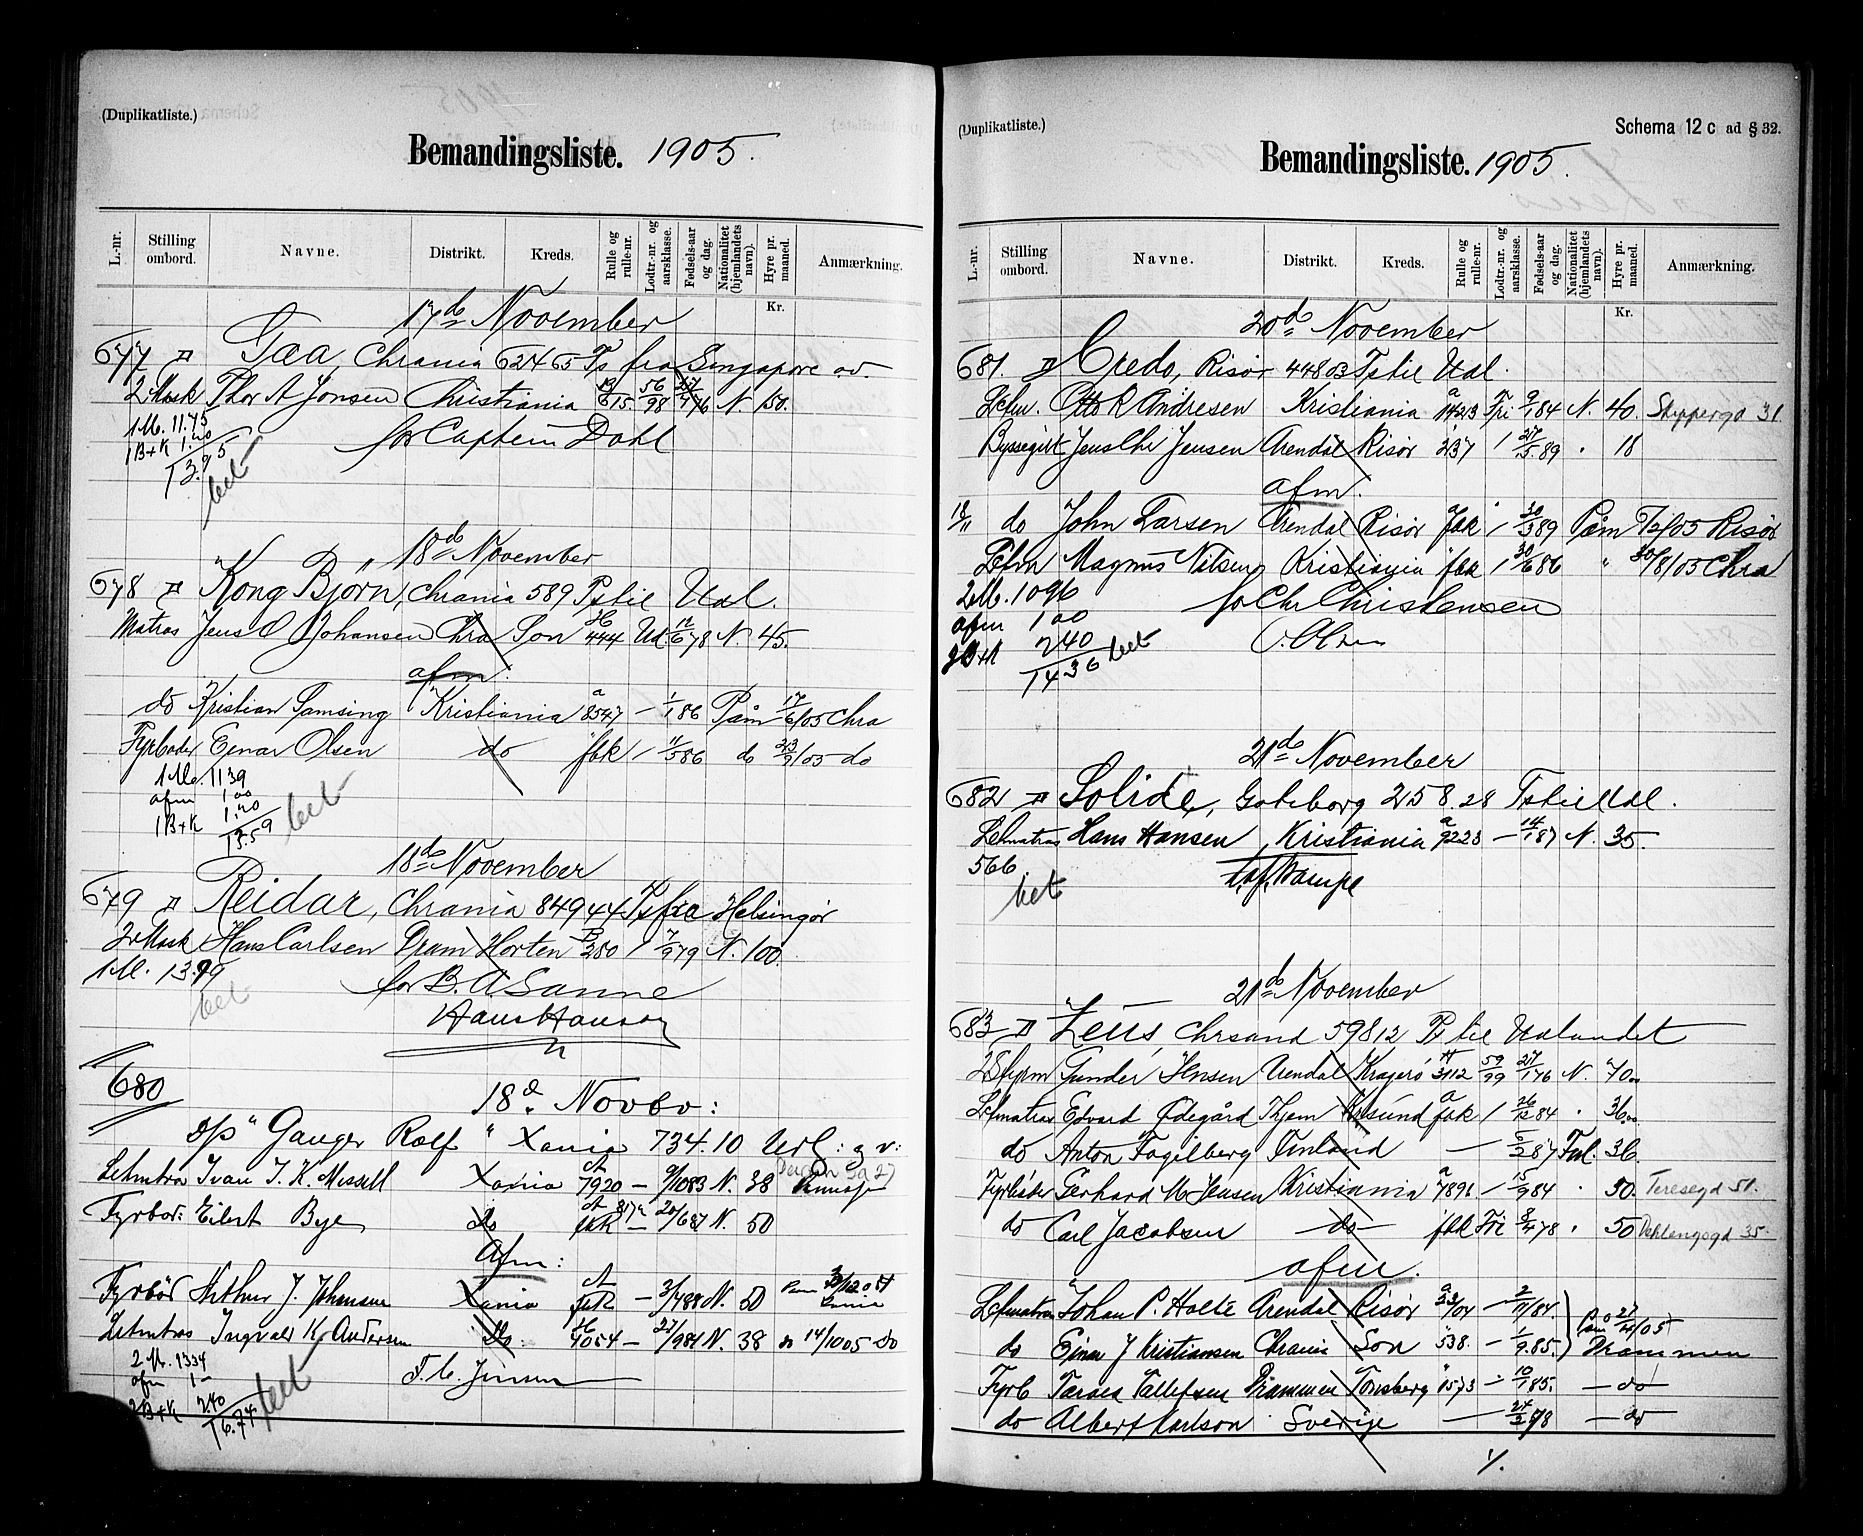 (Duplikatliste.)
Bemandingsliste. 1905.
L.-nr.
Stilling ombord.
Navne.
Distrikt.
Kreds.
Rulle og rulle-nr.
Lodtr.-nr. og aarsklasse.
Fødsels-aar og dag.
Nationalitet (hjemlandets navn).
Hyre pr. maaned.
Anmærkning.
Kr.
17de November
677 Gaa, Chrania 62465 Ts fra Singapore
2 Mask Thor A Jonsen Christiania B 615 56/98 N 150.
1 M. 11.75
1 B+K 1.20
13.95
bet
for Captein Dahl
18de November
678 "Kong Bjørn", Chrania 589 Ts til Udl.
Matros Jens O Johansen Chra Son 444 Ud 12/6 78 N. 45.
afm.
do Kristian Samsing Kristiania a 8547 — 1/1 86 Påm 17/6/05 Chra
Fyrbøder Einar Olsen do fbk 1 11/5 86 do 23/9/05 do
1 M. 1139
afm 1 00
1 B+K 1.20
13.59
bet
18de November
679 Reidar, Chrania 849 44 Ts fra Helsingør
2 Mask Hans Carlsen Dram Horten B 280 1 7/9 79 N. 100.
1 M. 13.99
bet
for B. A Sanne
Hans Hanson
680
18d Novbr:
s/s "Ganger Rolf" Xania 734.10 Udl:
Letmtrs Ivan J. K. Missell Xania A 7920 — 9/10 83 N. 38
Fyrbød: Eilert Bye do fbk — 20/6 87 N. 50
Afm:
Fyrbød Arthur J. Johansen Xania A fbk — 3/7 88 N. 50
Letmtros Ingvald Kr Andersen Do: 4054 — 27/9 84 N. 38 14/10 05 do
2 M. 1334
afm 1 —
2 B+K 2.40
16.74
bet
(Duplikatliste.)
Schema 12 c ad § 32.
Bemandingsliste. 1905.
L.-nr.
Stilling ombord.
Navne.
Distrikt.
Kreds.
Rulle og rulle-nr.
Lodtr.-nr. og aarsklasse.
Fødsels-aar og dag.
Nationalitet (hjemlandets navn).
Hyre pr. maaned.
Anmærkning.
Kr.
20de November
681 Credo, Risør 448 03 Ts til Udl.
Otto R Andresen Kristiania a 1423 Fri 9/1 84 N. 40. Skippergd 31
Byssegut Jens Chr Jensen Arendal Risør 237 1 27/5 89 " 18
afm.
18/11 do John Larsen Arendal Risør fbk 1 30/3 89 Påm 7/2/05 Risør
Magnus Nilsen Kristiania fbk 1 30/6 86 " 30/8/05 Chra
2 M. 1096
afm 1 00
2 B+K 240
1436 bet
for Chr Christensen
O. Olsen
21de November
682 Solide, Goteborg 258.28 Ts til Udl.
Letmatros Hans Hansen Kristiania a 9223 — 14/1 87 N. 35.
566
bet
21de November
683 "Zeus", Chrsand 598 12 Ts til Udlandet
2 Styrm Gunder Jensen Arendal Kragerø A 3112 59/99 27/1 76 N. 70..
Letmatros Edvard Ødegård Thjem Krsund a fbk 1 26/12 84 " 36..
do Anton Fagilberg Finland — 87 Finl. 36.
Fyrbøder Gerhard M Jensen Kristiania a 7896 — 15/9 84 " 50. Teresegd 51.
do Carl Jacobsen — do — fbk Fri 8/4 78 " 50 Dehlengsgd 35.
afm.
Letmatros Johan P. Holte Arendal Risør 23/04 — 2/11 84.
do Einar J Kristiansen Chrania Son 538. — 1/9 85. Påm 27/4/05 Drammen
Fyrb Tarald Tallefsen Drammen Tønsberg 1573 — 10/1 85. — do
do Albert Karlson Sverige — 24/2 78 — do
%.